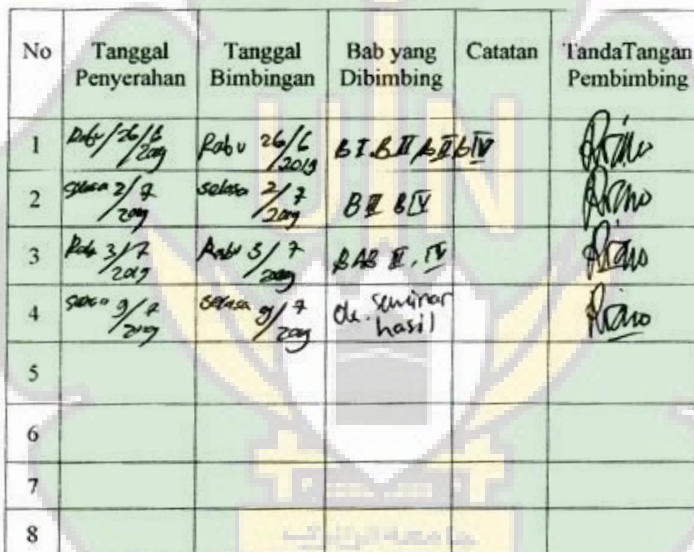 No Tanggal Penyerahan Tanggal Bimbingan Bab yang Dibimbing Catatan TandaTangan Pembimbing
1 Rabu 26/6 2019 Rabu 26/6 2019 B I. B II B III B IV
2 Selasa 2/7 2019 selasa 2/7 2019 B III B IV
3 Rabu 3/7 2019 Rabu 3/7 2019 BAB III, IV
4 Selasa 9/7 2019 Selasa 9/7 2019 seminar hasil
5
6
7
8
UIN